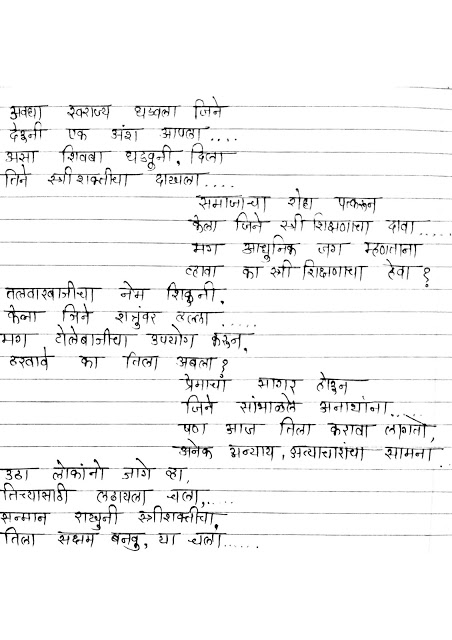 अवघा स्वराज्य घडवला जिने
देऊनी एक अंश आपला....
असा शिवबा घडवूनी, दिला
तिने स्त्रीशक्तीचा दाखला....
समाजाचा रोष पत्करून
केला जिने स्त्री शिक्षणाचा दावा.....
मग आधुनिक जग म्हणताना
व्हावा का स्त्री शिक्षणाचा हेवा ?
तलवारबाजीचा नेम शिकुनी,
केला जिने शत्रुंवर हल्ला.....
मग टोलेबाजीचा उपयोग करून,
ठरवावे का तिला अबला ?
प्रेमाचा सागर होऊन
जिने सांभाळले अनाथांना.....
पण आज तिला करावा लागतो,
अनेक अन्याय, अत्याचारांचा सामना...
उठा लोकांनो जागे व्हा,
तिच्यासाठी लढायला चला,....
सन्मान राखुनी स्त्रीशक्तीचा,
तिला सक्षम बनवू, या चला......